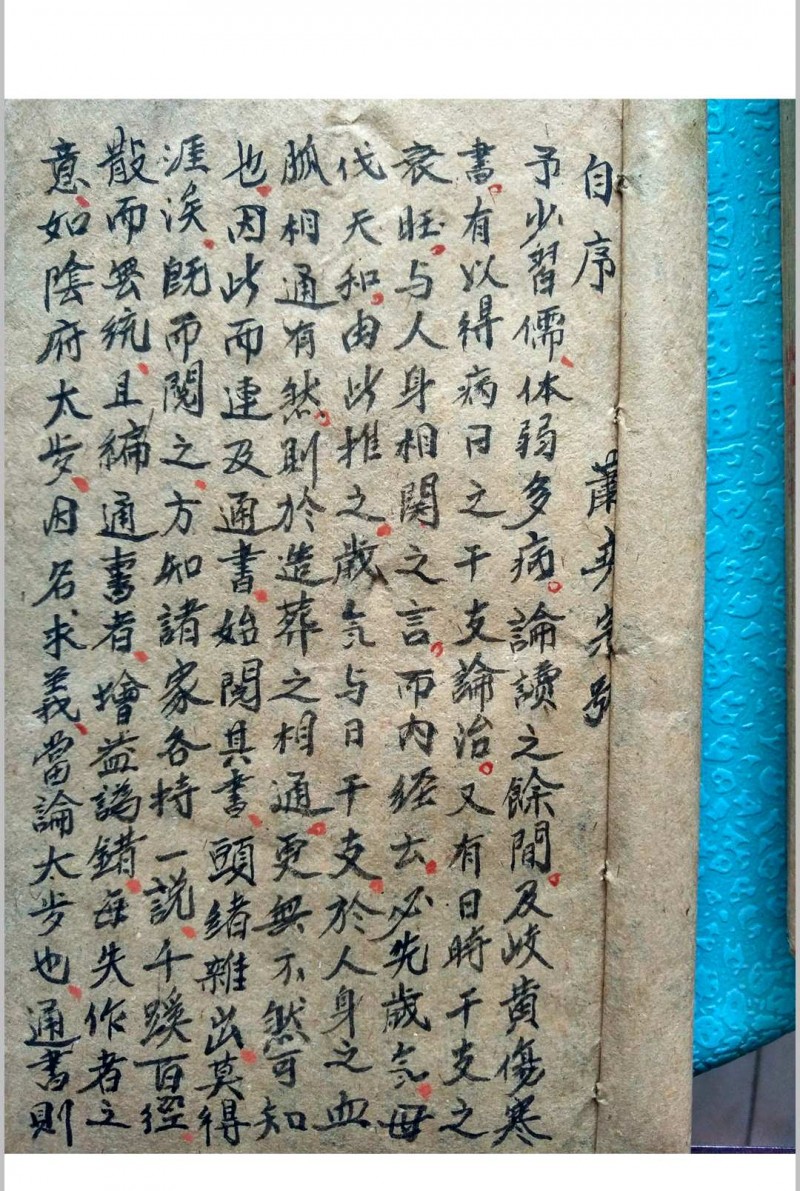 自序
予少習儒体弱多病。論讀之餘間。及岐黄傷寒
書。有以得病日之干支論治。又有日時干支之
衰旺。与人身相関之言。而内經云必先歲氣毋
伐天和。由此推之歲氣与日干支於人身之血
脈相通有然。則於造葬之相通更無不然可知
也因此而連及通書始閱其書頭緒雜出莫得
涯涘既而閱之方知諸家各持一説千蹊百徑
散而無統且編通書者增益譌錯每失作者之
意如陰府太步因名求義當論大步也通書則